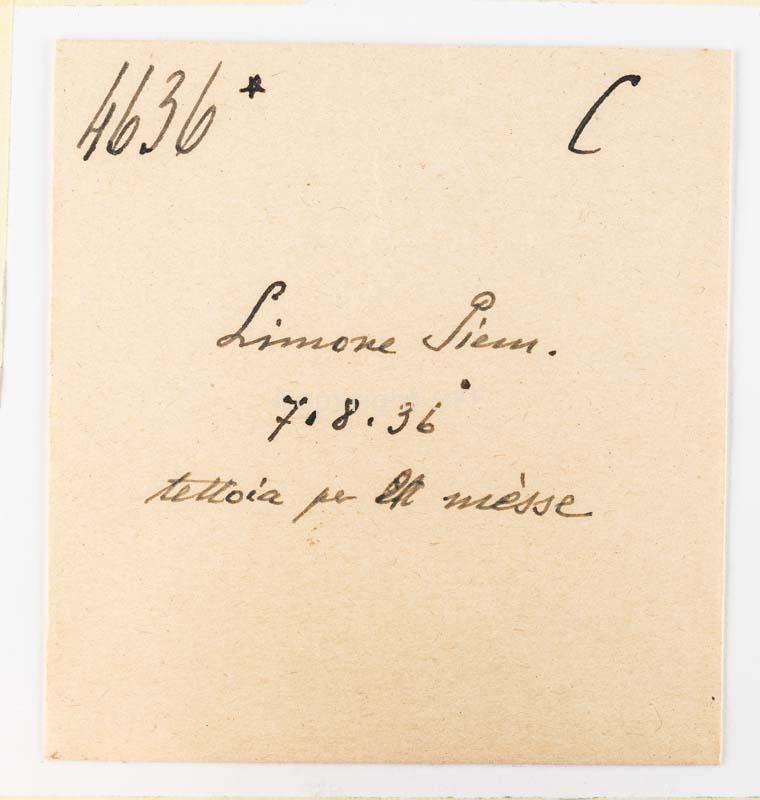 4636* C
Limone Piem.
7.8.36
tettoia per mèsse